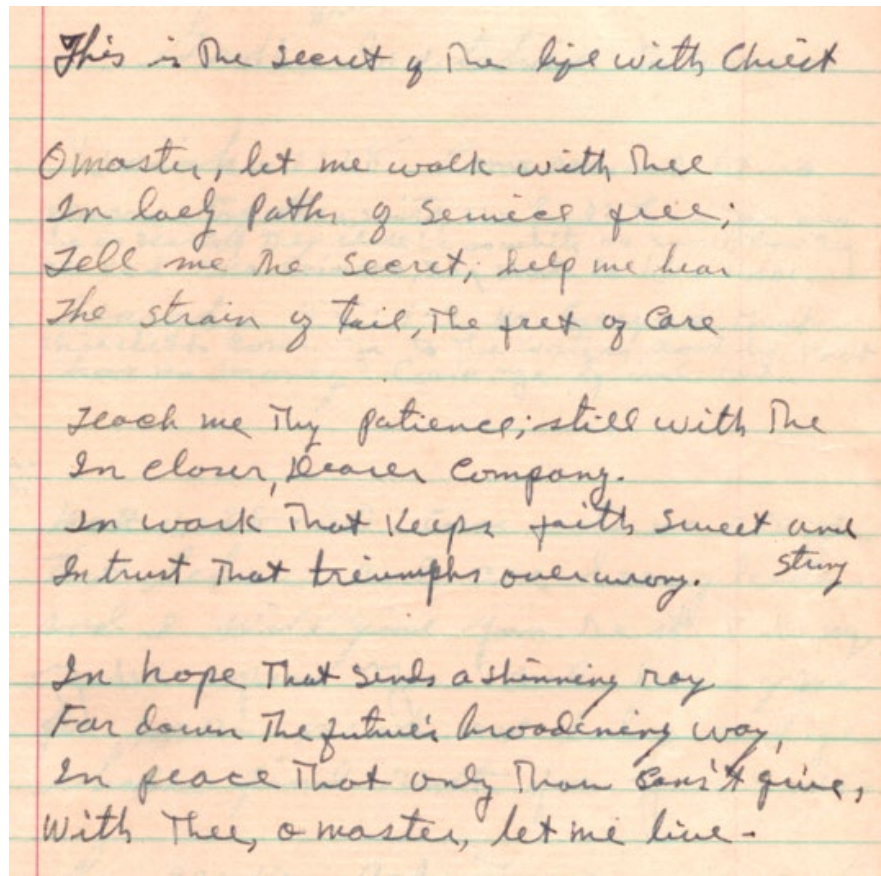 This is the secret of the life with Christ
O master, let me walk with Thee
In lowly Paths of Service free;
Tell me the secret; help me bear
The strain of toil, the fret of Care
Teach me Thy patience; still with The
In closer, Dearer Company.
In work That Keeps faith Sweet and
strong
In trust That triumphs over wrong.
In hope That Sends a shinning ray
Far down The future's broadening way,
In peace That only Thou Cans't give,
With Thee, o master, let me live -